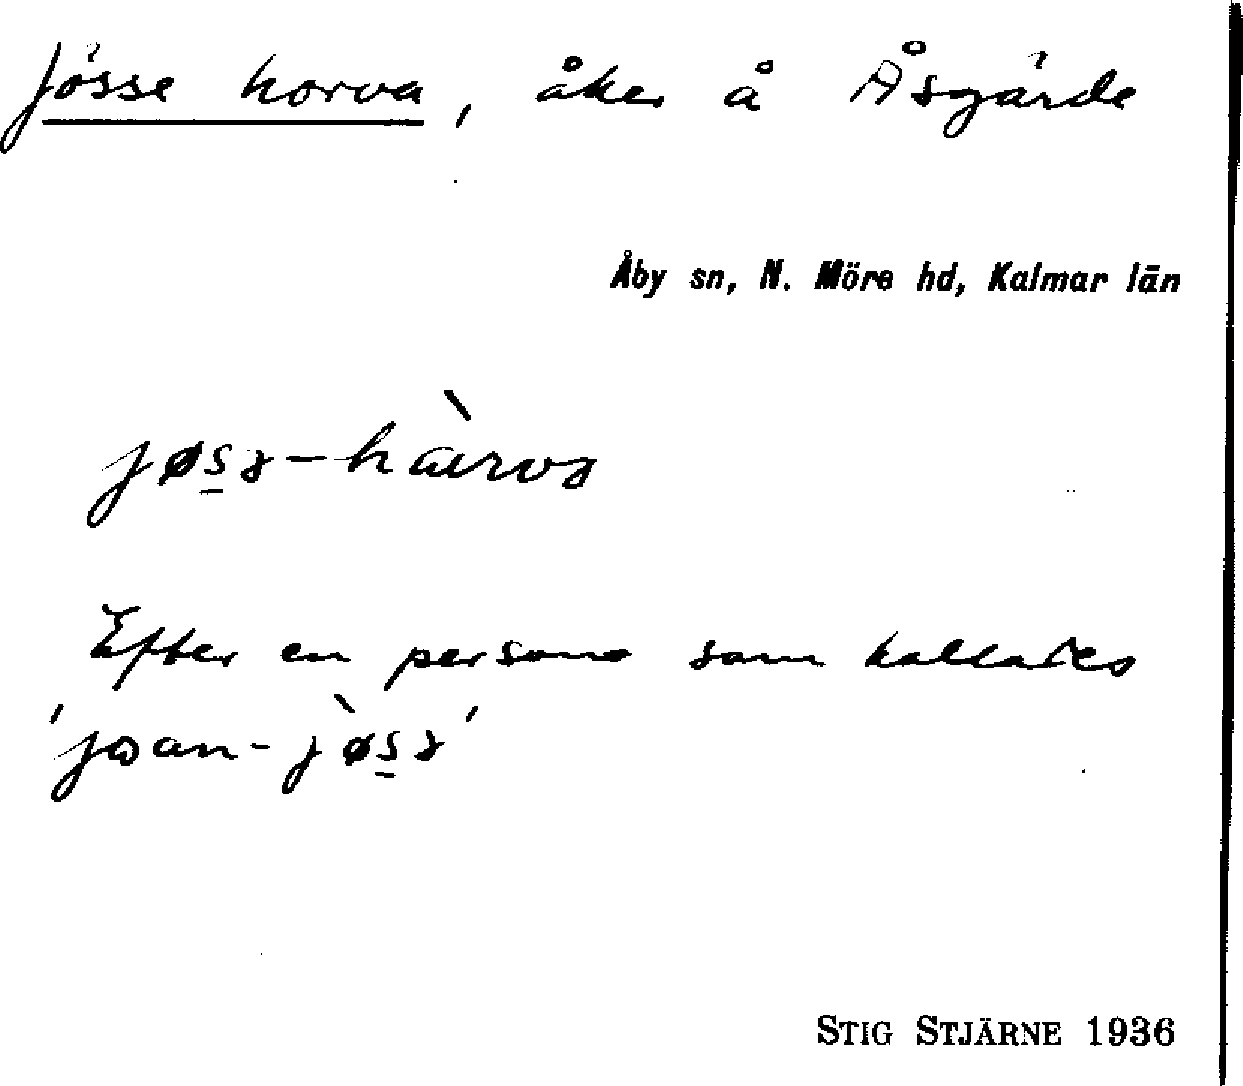 Jösse horva, åker å Åsgärde
Åby sn, N. Möre hd, Kalmar län
Efter en person som kallades
STIG STJÄRNE 1936